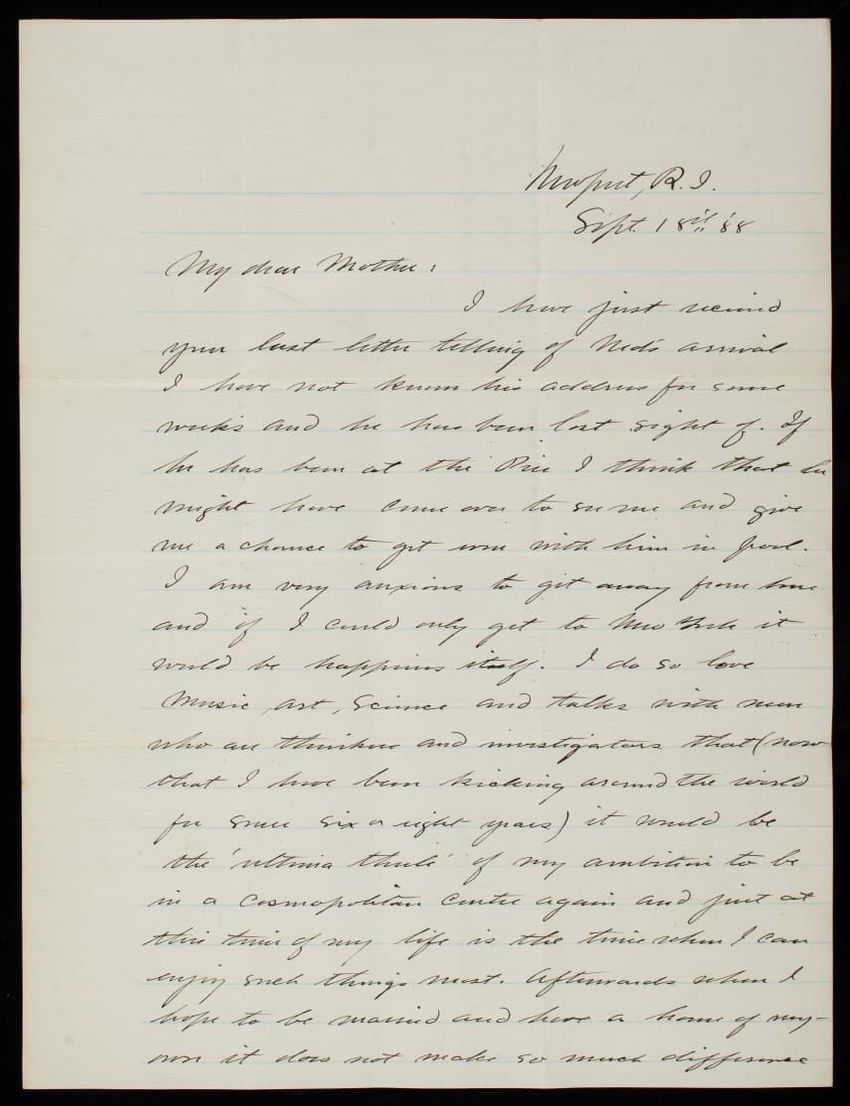 Newport, R.I.
Sept. 18th '88
My dear Mother:
I have just received
your last letter telling of Ned's arrival
I have not known his address for some
weeks and he has been lost sight of. If
he has been at the Pier I think that he
might have come over to see me and give
me a chance to get even with him in pool.
I am very anxious to get away from here
and if I could only get to New York it
would be happiness itself. I do so love
Music, art, Science and talks with men
who are thinkers and investigators that (now
that I have been kicking around the world
for some six or eight years) it would be
the 'ultima thule' of my ambition to be
in a cosmopolitan centre again and just at
this time of my life is the time when I can
enjoy such things most. Afterwards when I
hope to be married and have a home of my-
own it does not make so much difference